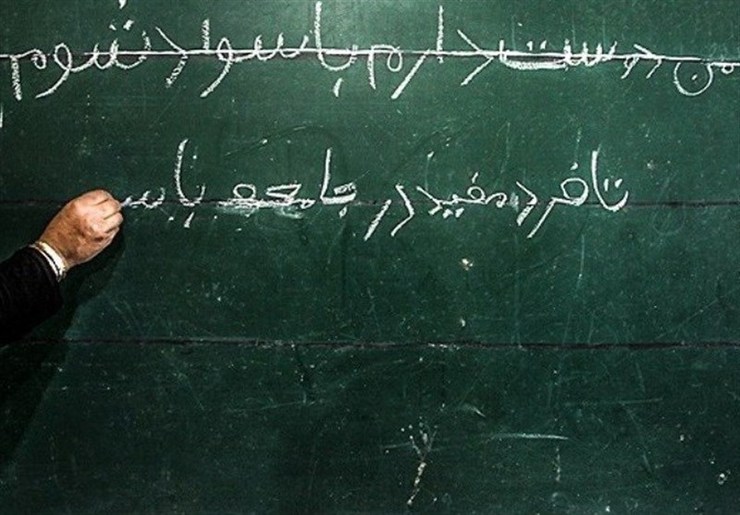 من دوست دارم با سواد شوم
تا فرد مفید در جامعه باش